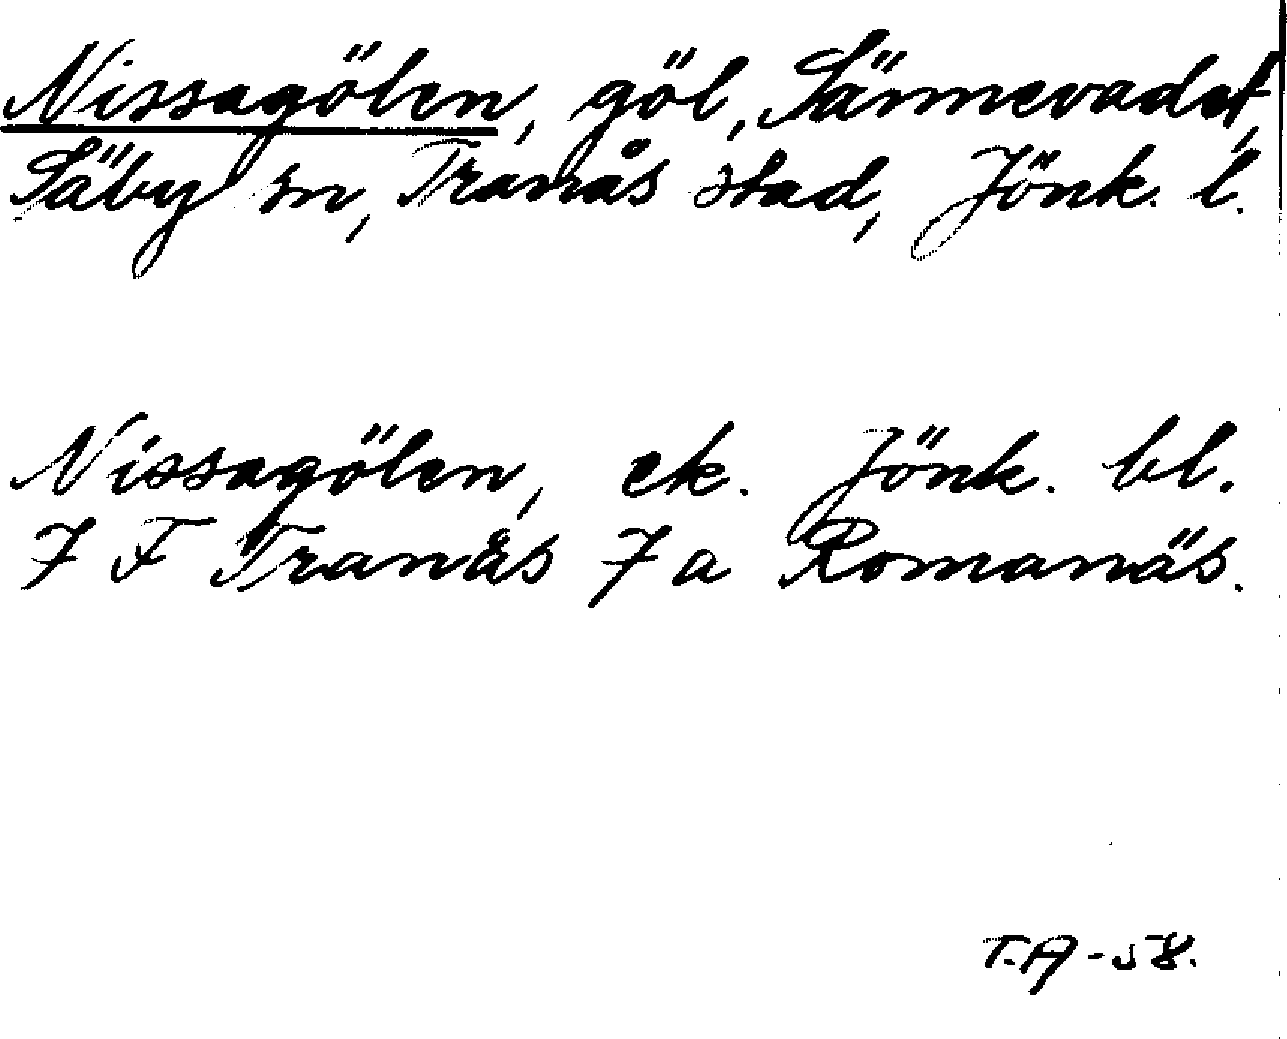 Nissagölen, göl, Sännevadet,
Säby sn, Tranås stad, Jönk. l.
Nissagölen, ek. Jönk. bl.
7 F Tranås 7 a Romanäs.
T.A - 58.